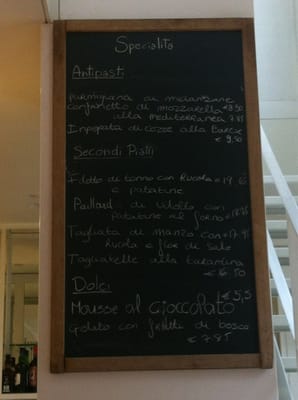 Specialità
Antipasti
Parmigiana di melanzane
Confinetto di mozzarella € 9.50
alla mediterranea 7.85
Impepata di cozze alla
€ 9.50
Secondi Piatti
Filetto di tonno con Rucola = 19.
e patatine
Paillard di vitello con
patatine al forno =
Tagliata di manzo con = 17.
Rucola e fior di sale
Tagliatelle alla tarantina
€ 16.50
Dolci
Mousse al cioccolato € 5,5
Gelato con frutti di bosco
€ 7.85